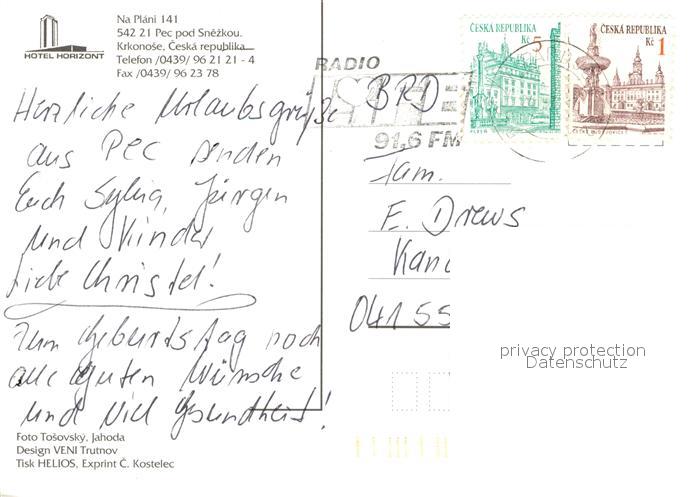 HOTEL HORIZONT
Na Pláni 141
542 21 Pec pod Sněžkou.
Krkonoše, Česká republika
Telefon /0439/ 96 21 21 - 4
Fax /0439/ 96 23 78
RADIO
91,6 FM
ČESKÁ REPUBLIKA
Kč 5
ČESKÁ REPUBLIKA
Kč 1
Herzliche Urlaubsgrüße
aus Pec senden
Euch Sylvia, Jürgen
und Kinder
Liebe Christel!
Zum Geburtstag noch
alle guten Wünsche
und viel Gesundheit!
BRD
Fam.
E. Drews
04155
privacy protection
Datenschutz
Foto Tošovský, Jahoda
Design VENI Trutnov
Tisk HELIOS, Exprint Č. Kostelec